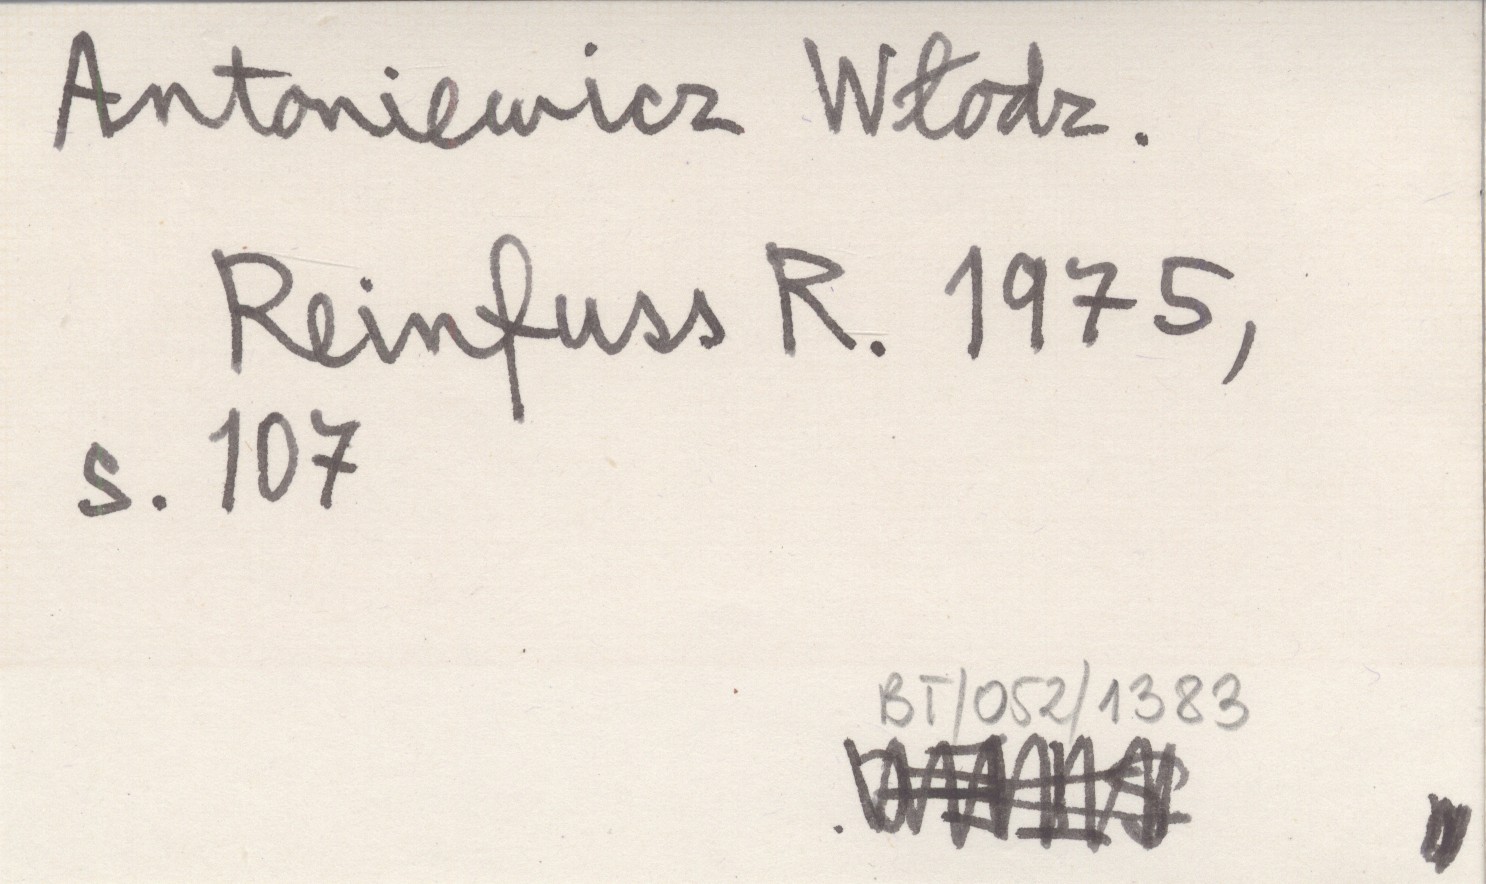 Antoniewicz Włodz.
Reinfuss R. 1975,
s. 107
BT/052/1383